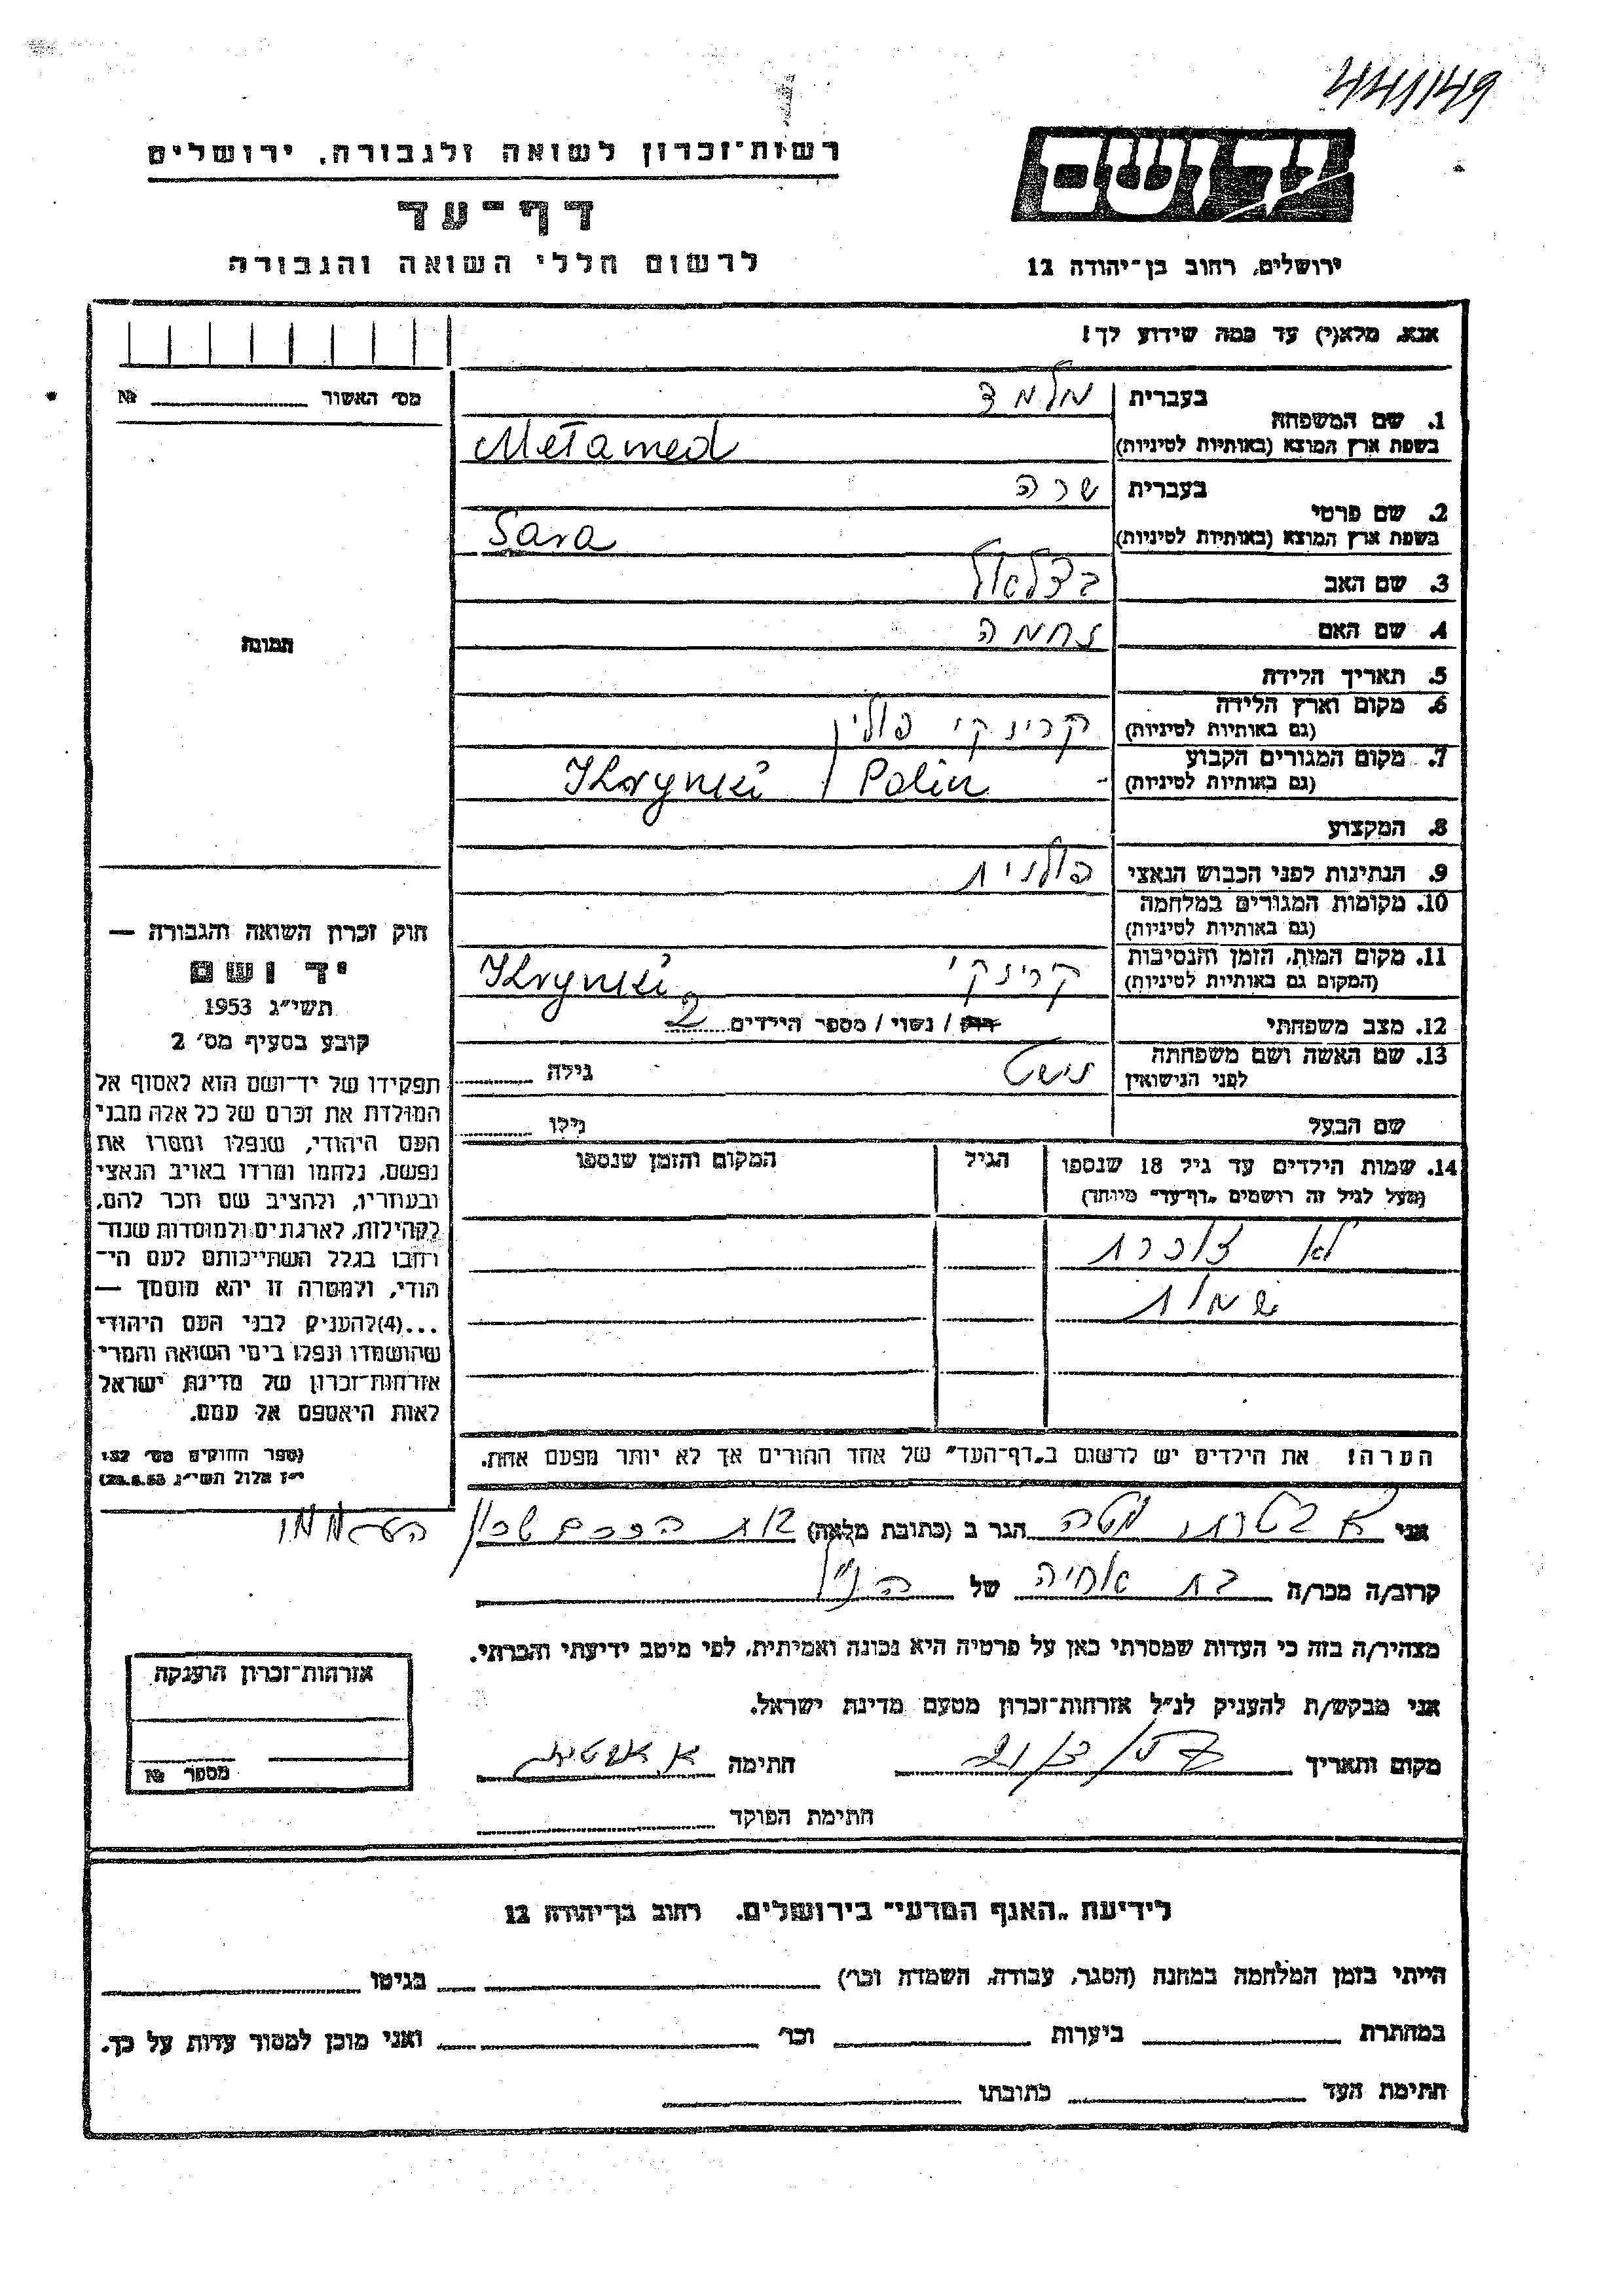 441/49
רשות־זכרון לשואה ולגבורה, ירושלים
יד ושם
דף־עד
לרשום חללי השואה והגבורה
ירושלים, רחוב בן־יהודה 12
אנא, מלא(י) עד כמה שידוע לך!
מס׳ האשור № 
1. שם המשפחה
בעברית מלמד
בשפת ארץ המוצא (באותיות לטיניות) Metamed
2. שם פרטי
בעברית שרה
בשפת ארץ המוצא (באותיות לטיניות) Sara
3. שם האב בצלאל
4. שם האם נחמה
תמונה
5. תאריך הלידה
6. מקום וארץ הלידה
(גם באותיות לטיניות) קרינקי פולין
7. מקום המגורים הקבוע
(גם באותיות לטיניות) Krynki / Polin
8. המקצוע
9. הנתינות לפני הכבוש הנאצי פולנית
10. מקומות המגורים במלחמה
(גם באותיות לטיניות)
11. מקום המות, הזמן והנסיבות
(המקום גם באותיות לטיניות) קרינקי Krynki
12. מצב משפחתי רוק / נשוי / מספר הילדים 2
13. שם האשה ושם משפחתה
לפני הנישואין גילה
שם הבעל גילו
14. שמות הילדים עד גיל 18 שנספו הגיל המקום והזמן שנספו
(מעל לגיל זה רושמים „דף־עד״ מיוחד)
לא זוכרת
שמות
הערה! את הילדים יש לרשום ב„דף־העד״ של אחד ההורים אך לא יותר מפעם אחת.
חוק זכרון השואה והגבורה —
יד ושם
תשי״ג 1953
קובע בסעיף מס׳ 2
תפקידו של יד־ושם הוא לאסוף אל
המולדת את זכרם של כל אלה מבני
העם היהודי, שנפלו ומסרו את
נפשם, נלחמו ומרדו באויב הנאצי
ובעוזריו, ולהציב שם וזכר להם,
לקהילות, לארגונים ולמוסדות שנח־
רחבו בגלל השתייכותם לעם הי־
הודי, ולמטרה זו יהא מוסמך —
...(4)להעניק לבני העם היהודי
שהושמדו ונפלו בימי השואה והמרי
אזרחות־זכרון של מדינת ישראל
לאות היאספם אל עמם.
(ספר החוקים מס׳ 132
י״ז אלול תשי״ג 28.8.53)
אני הגר ב (כתובת מלאה)
קרוב/ה מכר/ה בת אחיה של הנ״ל
מצהיר/ה בזה כי העדות שמסרתי כאן על פרטיה היא נכונה ואמיתית, לפי מיטב ידיעתי והכרתי.
אני מבקש/ת להעניק לנ״ל אזרחות־זכרון מטעם מדינת ישראל.
מקום ותאריך חתימה
חתימת הפוקד
אזרחות־זכרון הוענקה
מספר №
לידיעת „האגף המדעי״ בירושלים, רחוב בן־יהודה 12
הייתי בזמן המלחמה במחנה (הסגר, עבודה, השמדה וכו׳) בגיטו
במחתרת ביערות וכו׳ ואני מוכן למסור עדות על כך.
חתימת העד כתובתו